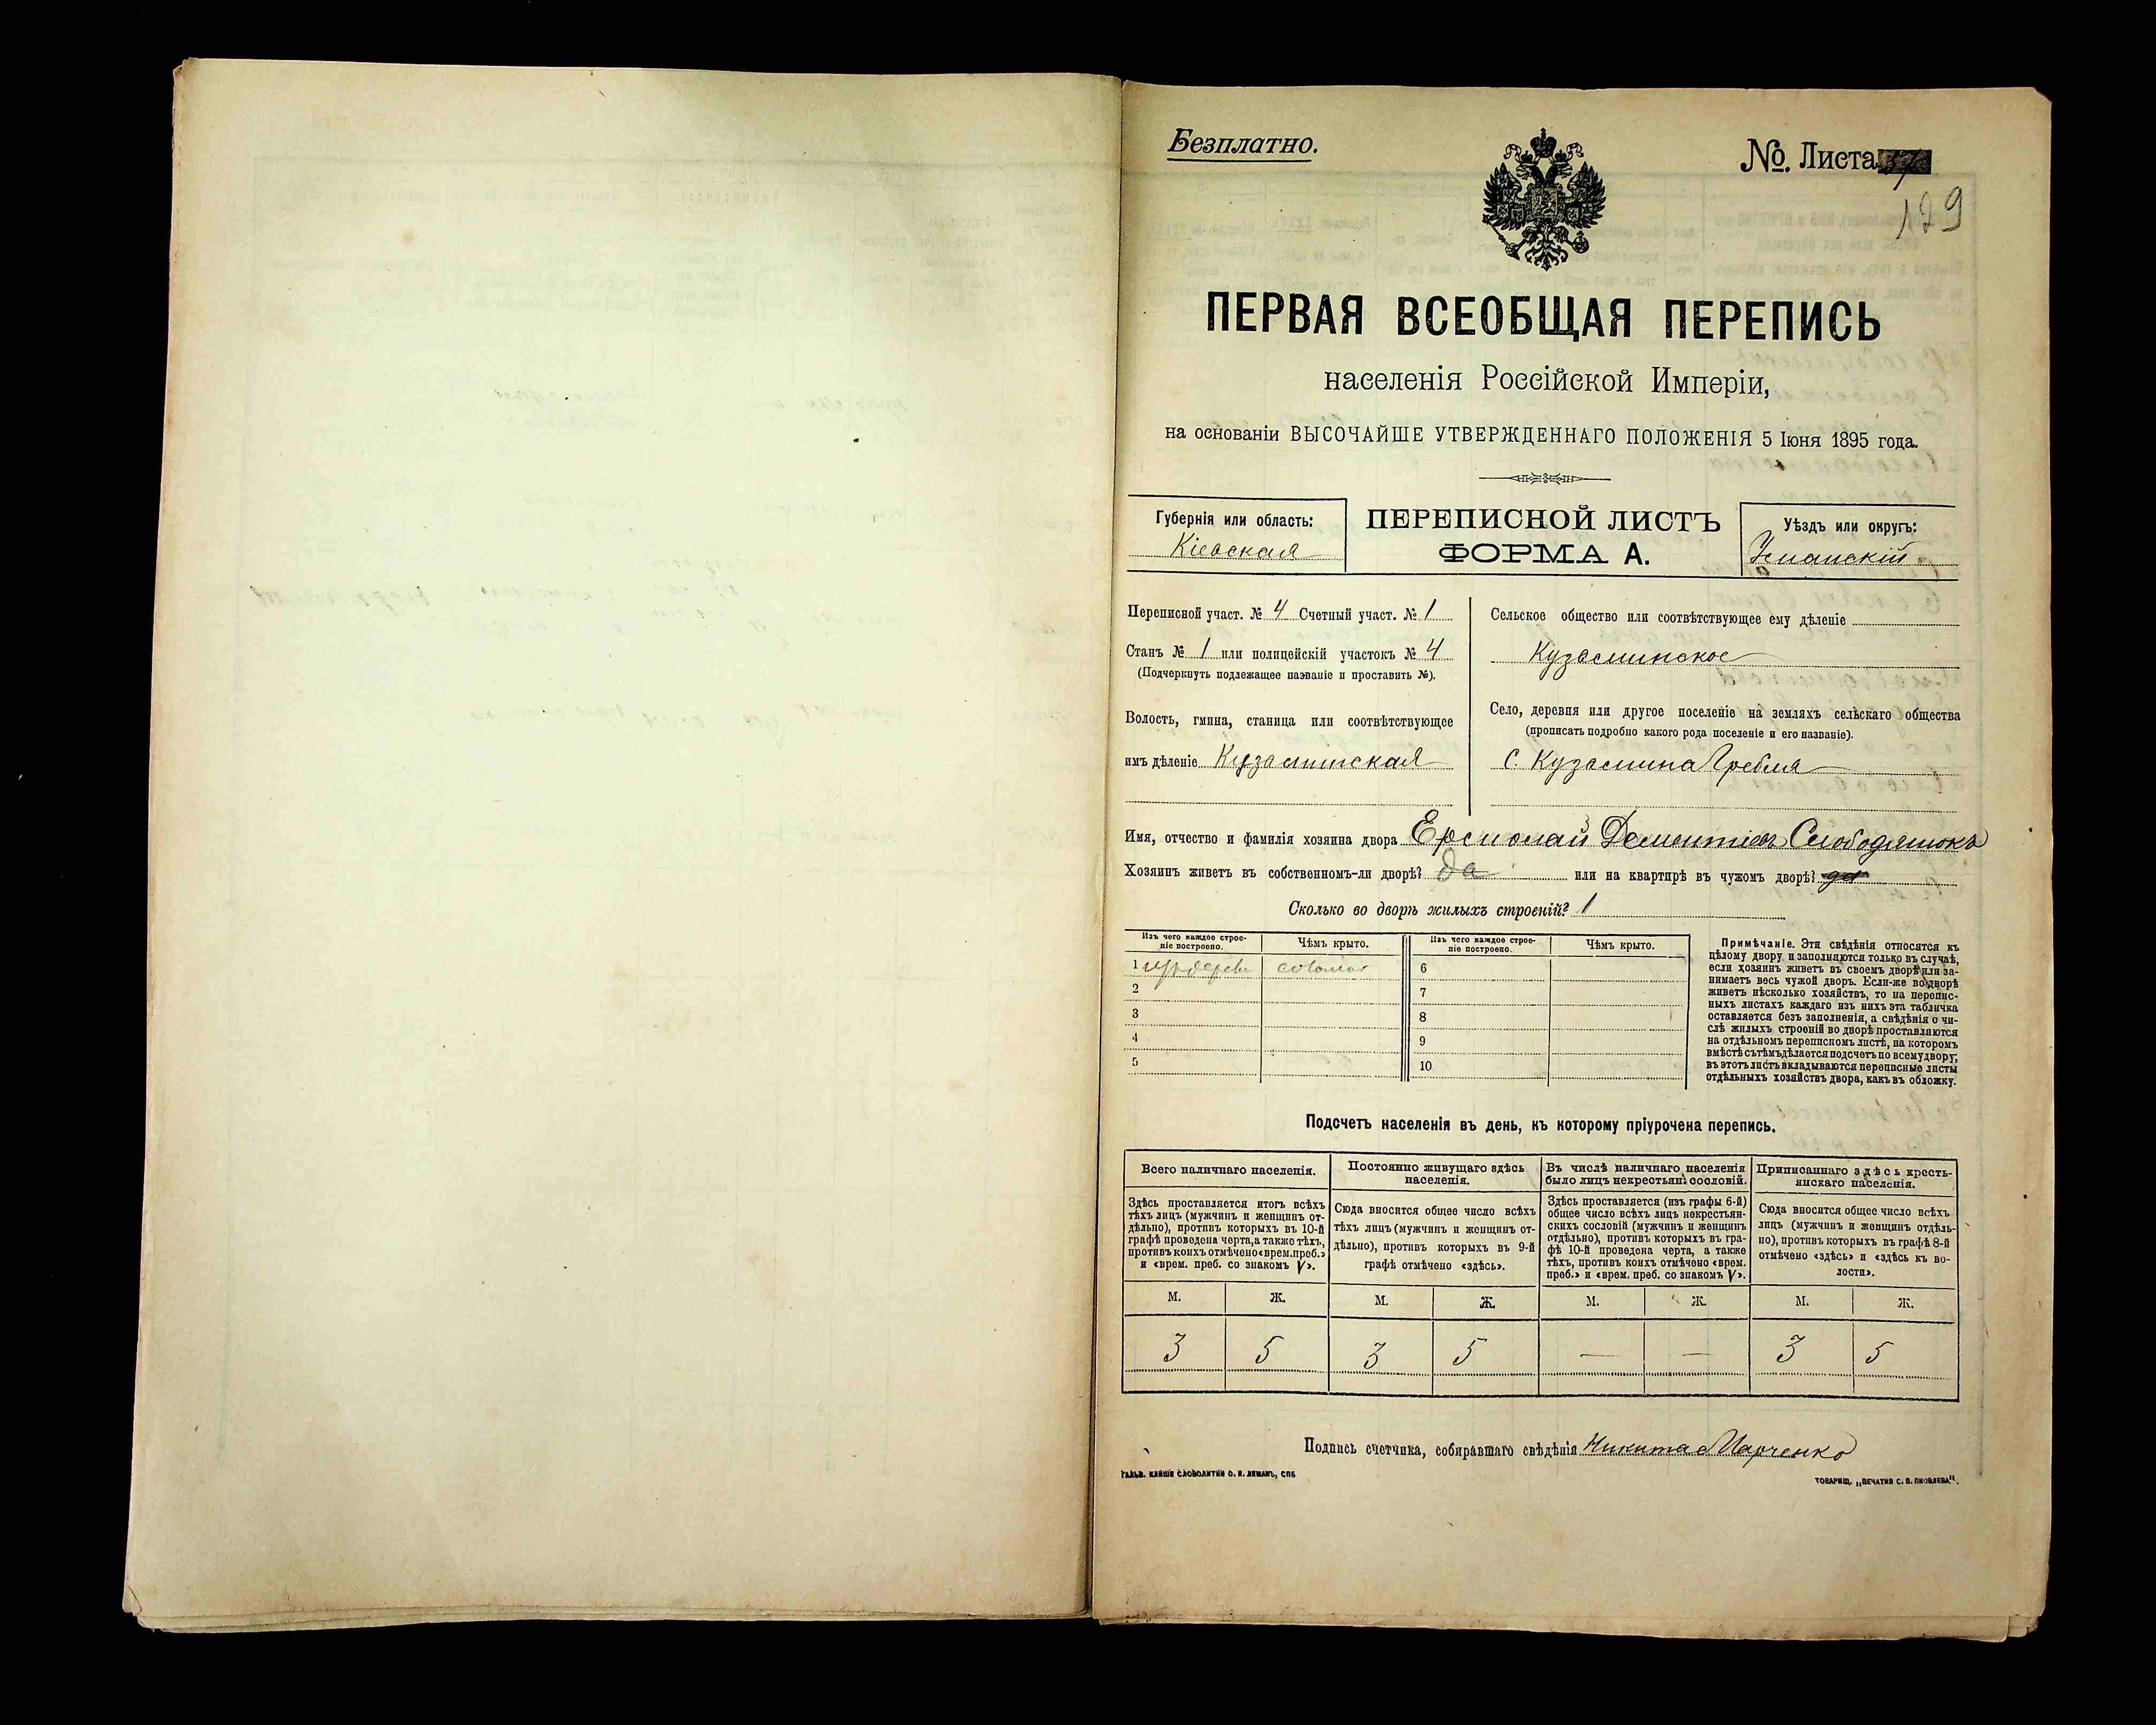 Безплатно.
№. Листа 37
129
ПЕРВАЯ ВСЕОБЩАЯ ПЕРЕПИСЬ
населенія Россійской Имперіи,
на основаніи ВЫСОЧАЙШЕ УТВЕРЖДЕННАГО ПОЛОЖЕНІЯ 5 Іюня 1895 года.
Губернія или область:
Кіевская
ПЕРЕПИСНОЙ ЛИСТЪ
ФОРМА А.
Уѣздъ или округъ:
Уманскій
Переписной участ. № 4 Счетный участ. № 1
Станъ № 1 или полицейскій участокъ № 4
(Подчеркнуть подлежащее названіе и проставить №).
Волость, гмина, станица или соотвѣтствующее
имъ дѣленіе Кузьминская
Сельское общество или соотвѣтствующее ему дѣленіе
Кузьминское
Село, деревня или другое поселеніе на земляхъ сельскаго общества
(прописать подробно какого рода поселеніе и его названіе).
С. Кузьмина Гребля
Имя, отчество и фамилія хозяина двора Ермолай Дементіевъ Слободянюкъ
Хозяинъ живетъ въ собственномъ-ли дворѣ? да или на квартирѣ въ чужомъ дворѣ?
Сколько во дворѣ жилыхъ строеній? 1
Изъ чего каждое строе-
ніе построено.
Чѣмъ крыто.
Изъ чего каждое строе-
ніе построено.
Чѣмъ крыто.
1 изъ дерева соломой 6
2 7
3 8
4 9
5 10
Примѣчаніе. Эти свѣдѣнія относятся къ
цѣлому двору и заполняются только въ случаѣ,
если хозяинъ живетъ въ своемъ дворѣ или за-
нимаетъ весь чужой дворъ. Если-же во дворѣ
живетъ нѣсколько хозяйствъ, то на перепис-
ныхъ листахъ каждаго изъ нихъ эта табличка
оставляется безъ заполненія, а свѣдѣнія о чи-
слѣ жилыхъ строеній во дворѣ проставляются
на отдѣльномъ переписномъ листѣ, на которомъ
вмѣстѣ съ тѣмъ дѣлается подсчетъ по всему двору;
въ этотъ листъ вкладываются переписные листы
отдѣльныхъ хозяйствъ двора, какъ въ обложку.
Подсчетъ населенія въ день, къ которому пріурочена перепись.
Всего наличнаго населенія.
Здѣсь проставляется итогъ всѣхъ
тѣхъ лицъ (мужчинъ и женщинъ от-
дѣльно), противъ которыхъ въ 10-й
графѣ проведена черта, а также тѣхъ,
противъ коихъ отмѣчено «врем. преб.»
и «врем. преб. со знакомъ V».
Постоянно живущаго здѣсь
населенія.
Сюда вносится общее число всѣхъ
тѣхъ лицъ (мужчинъ и женщинъ от-
дѣльно), противъ которыхъ въ 9-й
графѣ отмѣчено «здѣсь».
Въ числѣ наличнаго населенія
было лицъ некрестьян. сословій.
Здѣсь проставляется (изъ графы 6-й)
общее число всѣхъ лицъ некрестьян-
скихъ сословій (мужчинъ и женщинъ
отдѣльно), противъ которыхъ въ гра-
фѣ 10-й проведена черта, а также
тѣхъ, противъ коихъ отмѣчено «врем.
преб.» и «врем. преб. со знакомъ V».
Приписаннаго здѣсь кресть-
янскаго населенія.
Сюда вносится общее число всѣхъ
лицъ (мужчинъ и женщинъ отдѣль-
но), противъ которыхъ въ графѣ 8-й
отмѣчено «здѣсь» и «здѣсь къ во-
лости».
М. Ж. М. Ж. М. Ж. М. Ж.
3 5 3 5 — — 3 5
Подпись счетчика, собиравшаго свѣдѣнія Никита Марченко
ТОВАРИЩ. „ПЕЧАТНЯ С. П. ЯКОВЛЕВА“.